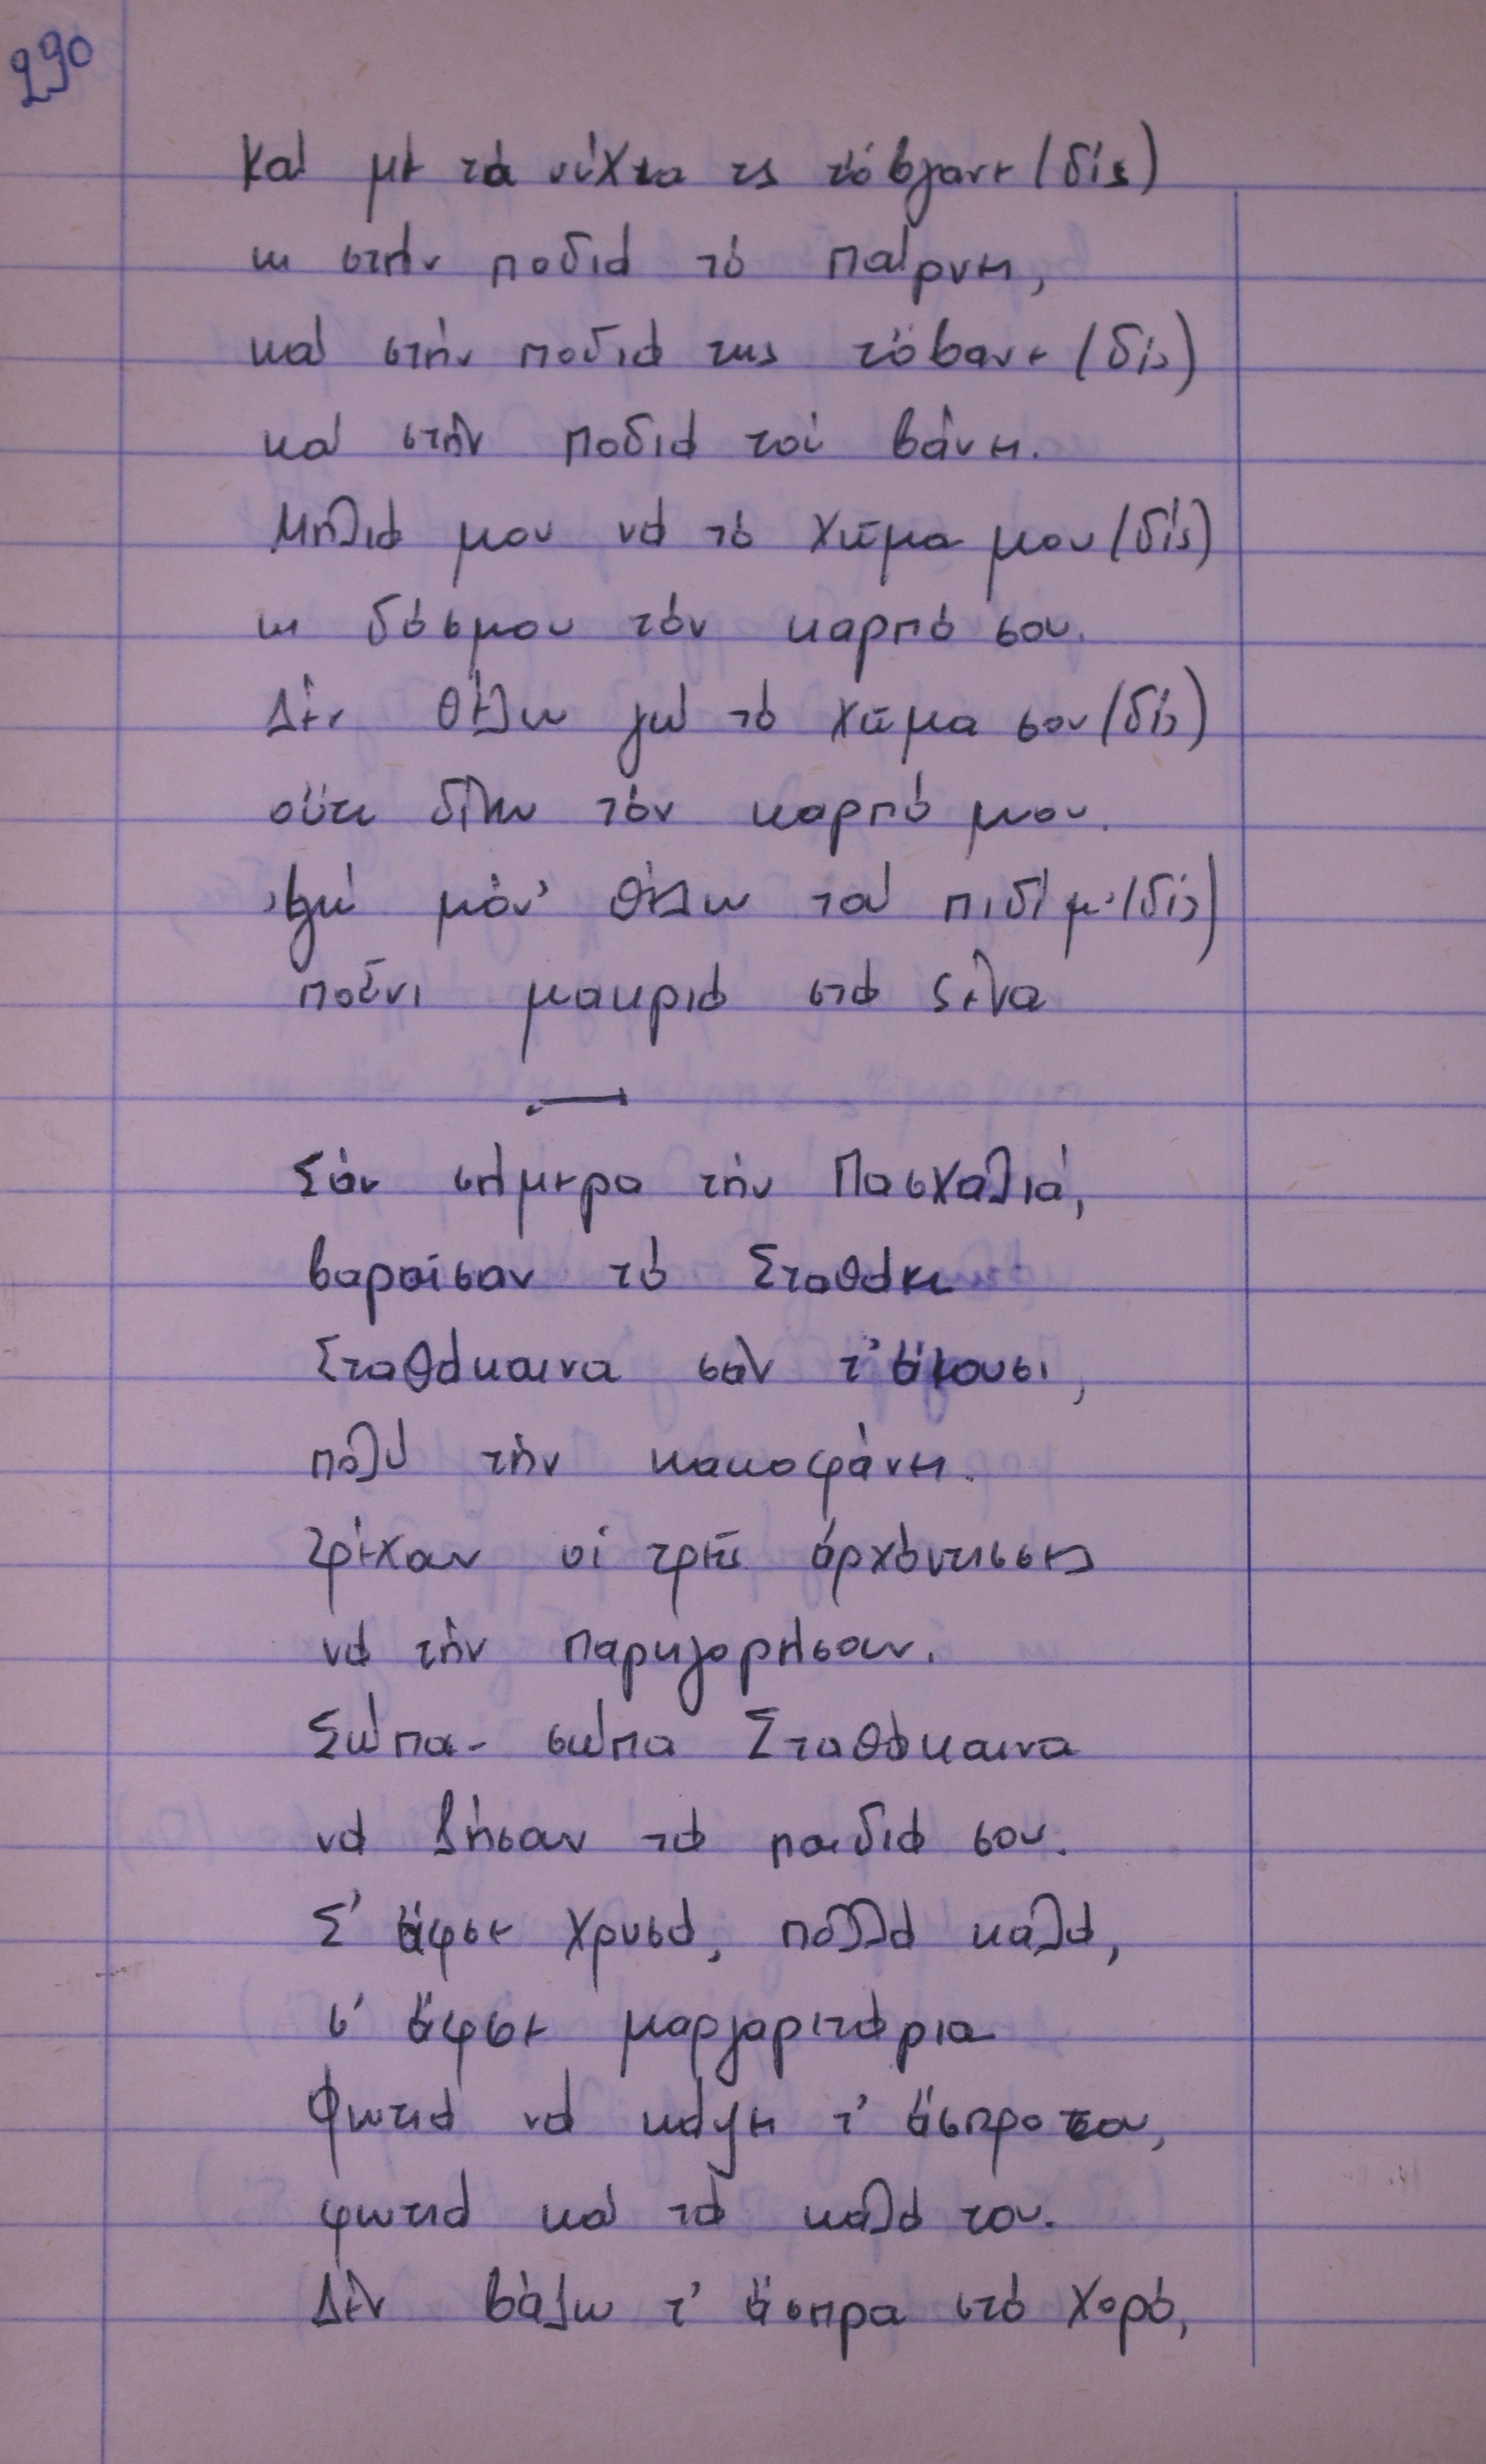 290
Καί μέ τά νύχια τς τόβγανε (δίς)
κι στήν ποδιά τό παίρνει,
καί στήν ποδιά της τόβανε (δίς)
καί στήν ποδιά τού βάνει.
Μηλιά μου νά τό χώμα μου (δίς)
κι δόσμου τόν καρπό σου.
Δέν θέλω γώ τό χώμα σου (δίς)
ούτε δίνω τόν καρπό μου.
εγώ μόν' θέλω τού πιδί μ' (δίς)
πούνι μακριά στά ξένα
Σάν σήμερα τήν Πασχαλιά,
βαροίσαν τό Σταθάκη
Σταθάκαινα σάν τ' άκουσι,
πολύ τήν κακοφάνη.
Τρέχαν οί τρείς άρχόντισσες
νά τήν παρηγορήσουν.
Σώπα - σώπα Σταθάκαινα
νά ζήσαν τά παιδιά σου.
Σ' άφσε χρυσά, πολλά καλά,
σ' άφσε μαργαριτάρια
Φωτιά νά κάψη τ' άσπρα του,
φωτιά καί τά καλά του.
Δέν βάζω τ' άσπρα στό χορό,